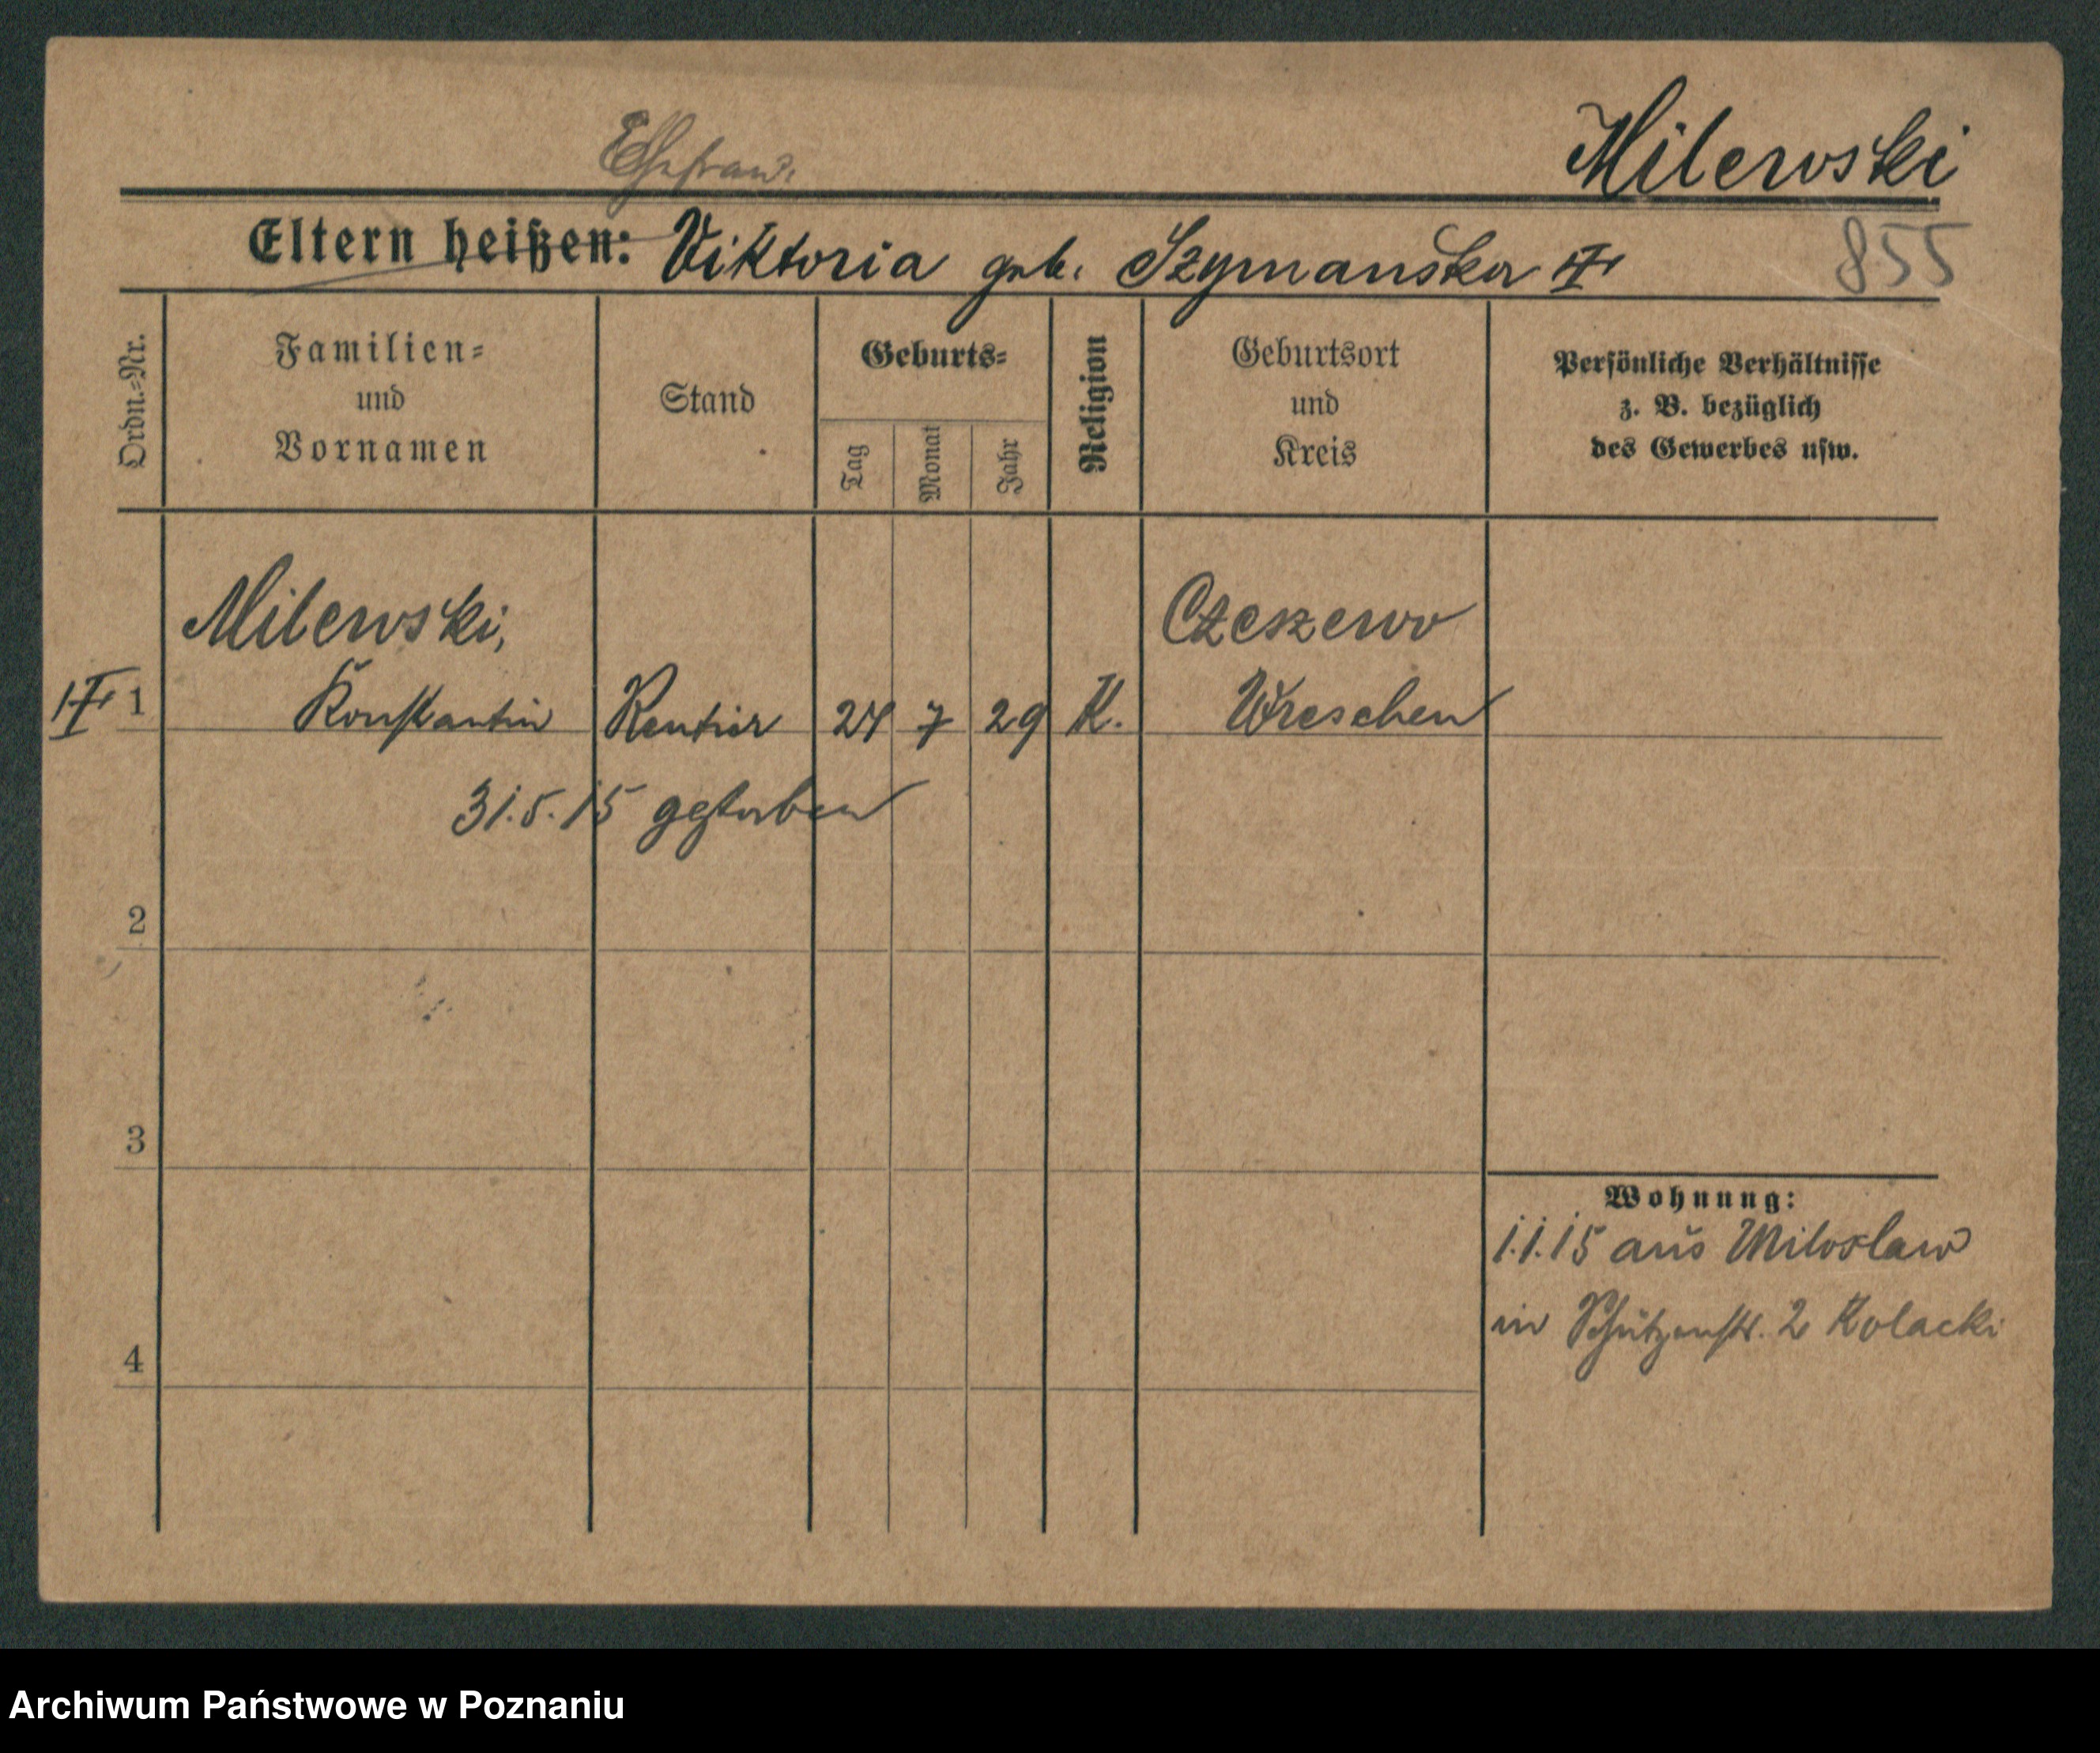 Milewski
Ehefrau.
Eltern heißen: Viktoria geb. Szymańska
855
Ordn.-Nr.
Familien-
und
Vornamen
Stand
Geburts-
Tag
Monat
Jahr
Religion
Geburtsort
und
Kreis
Persönliche Verhältnisse
z. B. bezüglich
des Gewerbes usw.
Milewski,
Czeszewo
1 Konstantin Rentier 24 7 29 K. Wreschen
31.5.15 gestorben
2
3
Wohnung:
1.1.15 aus Miloslaw
in Schützenstr. 2 Kolacki
4
Archiwum Państwowe w Poznaniu